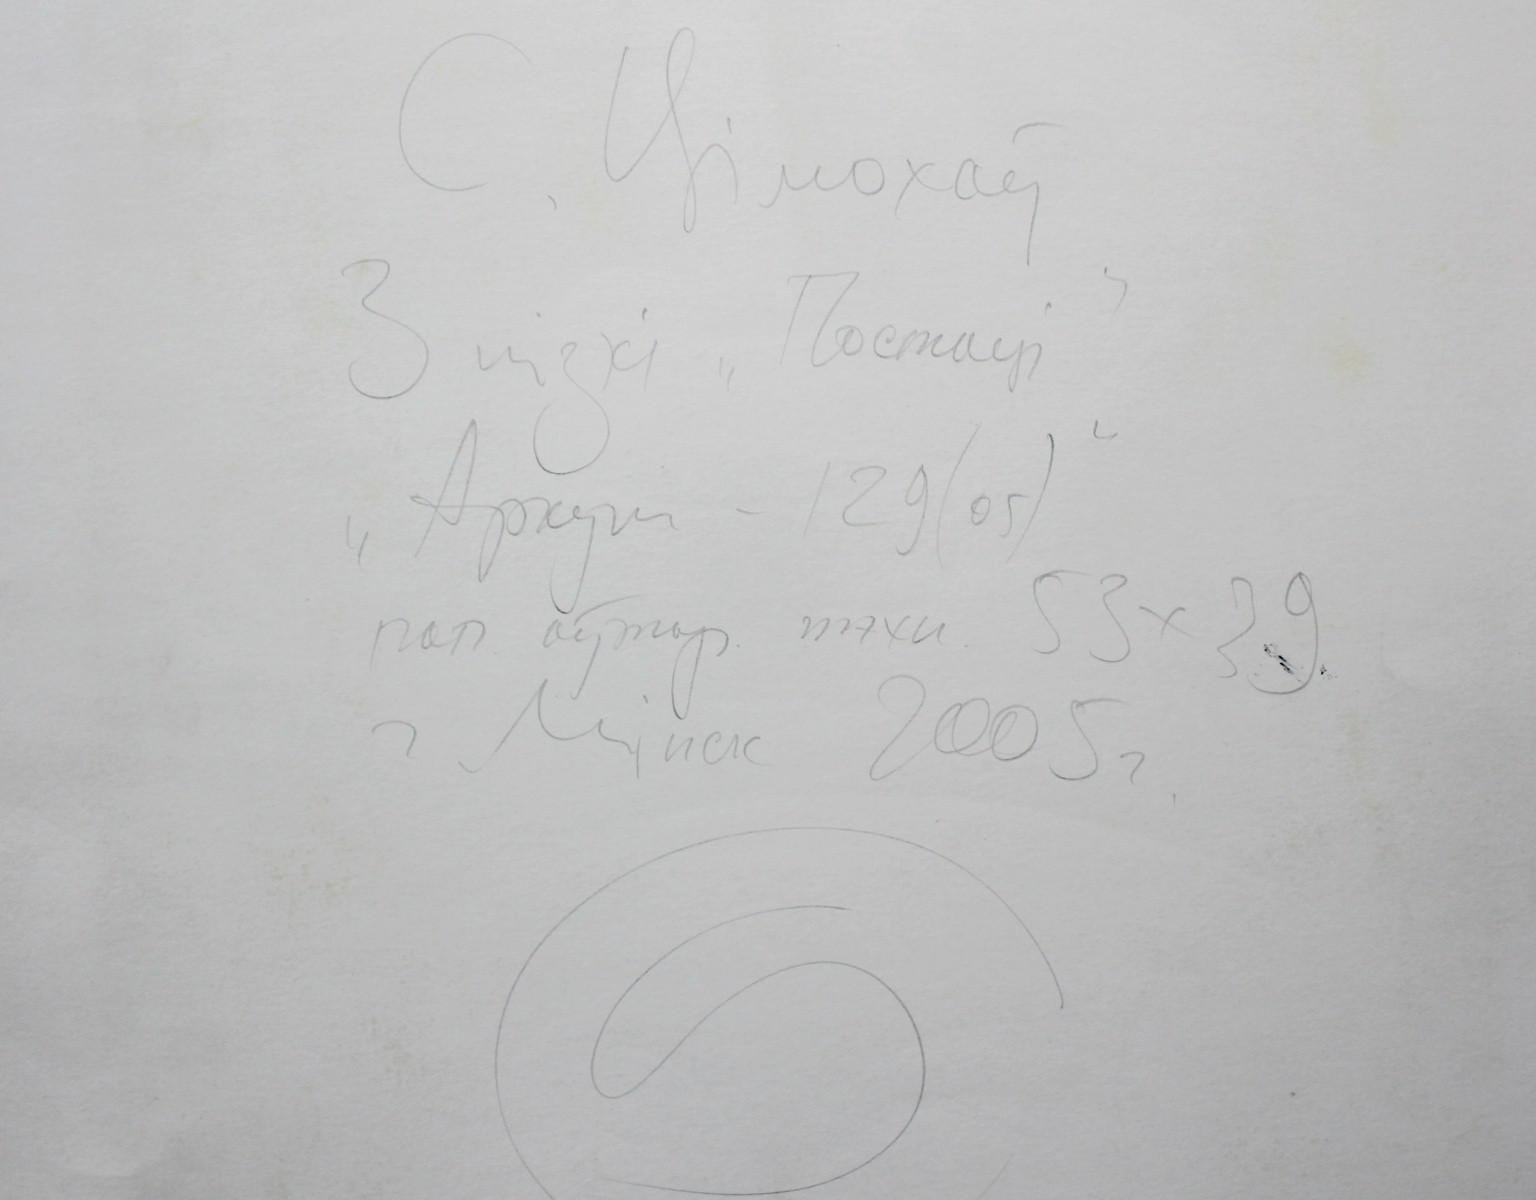 С. Цімохаў
З цыклі „Постаці”
„Аркуш - 129(05)“
пап. аўтар. тэхн. 53х39
г Мінск 2005г.